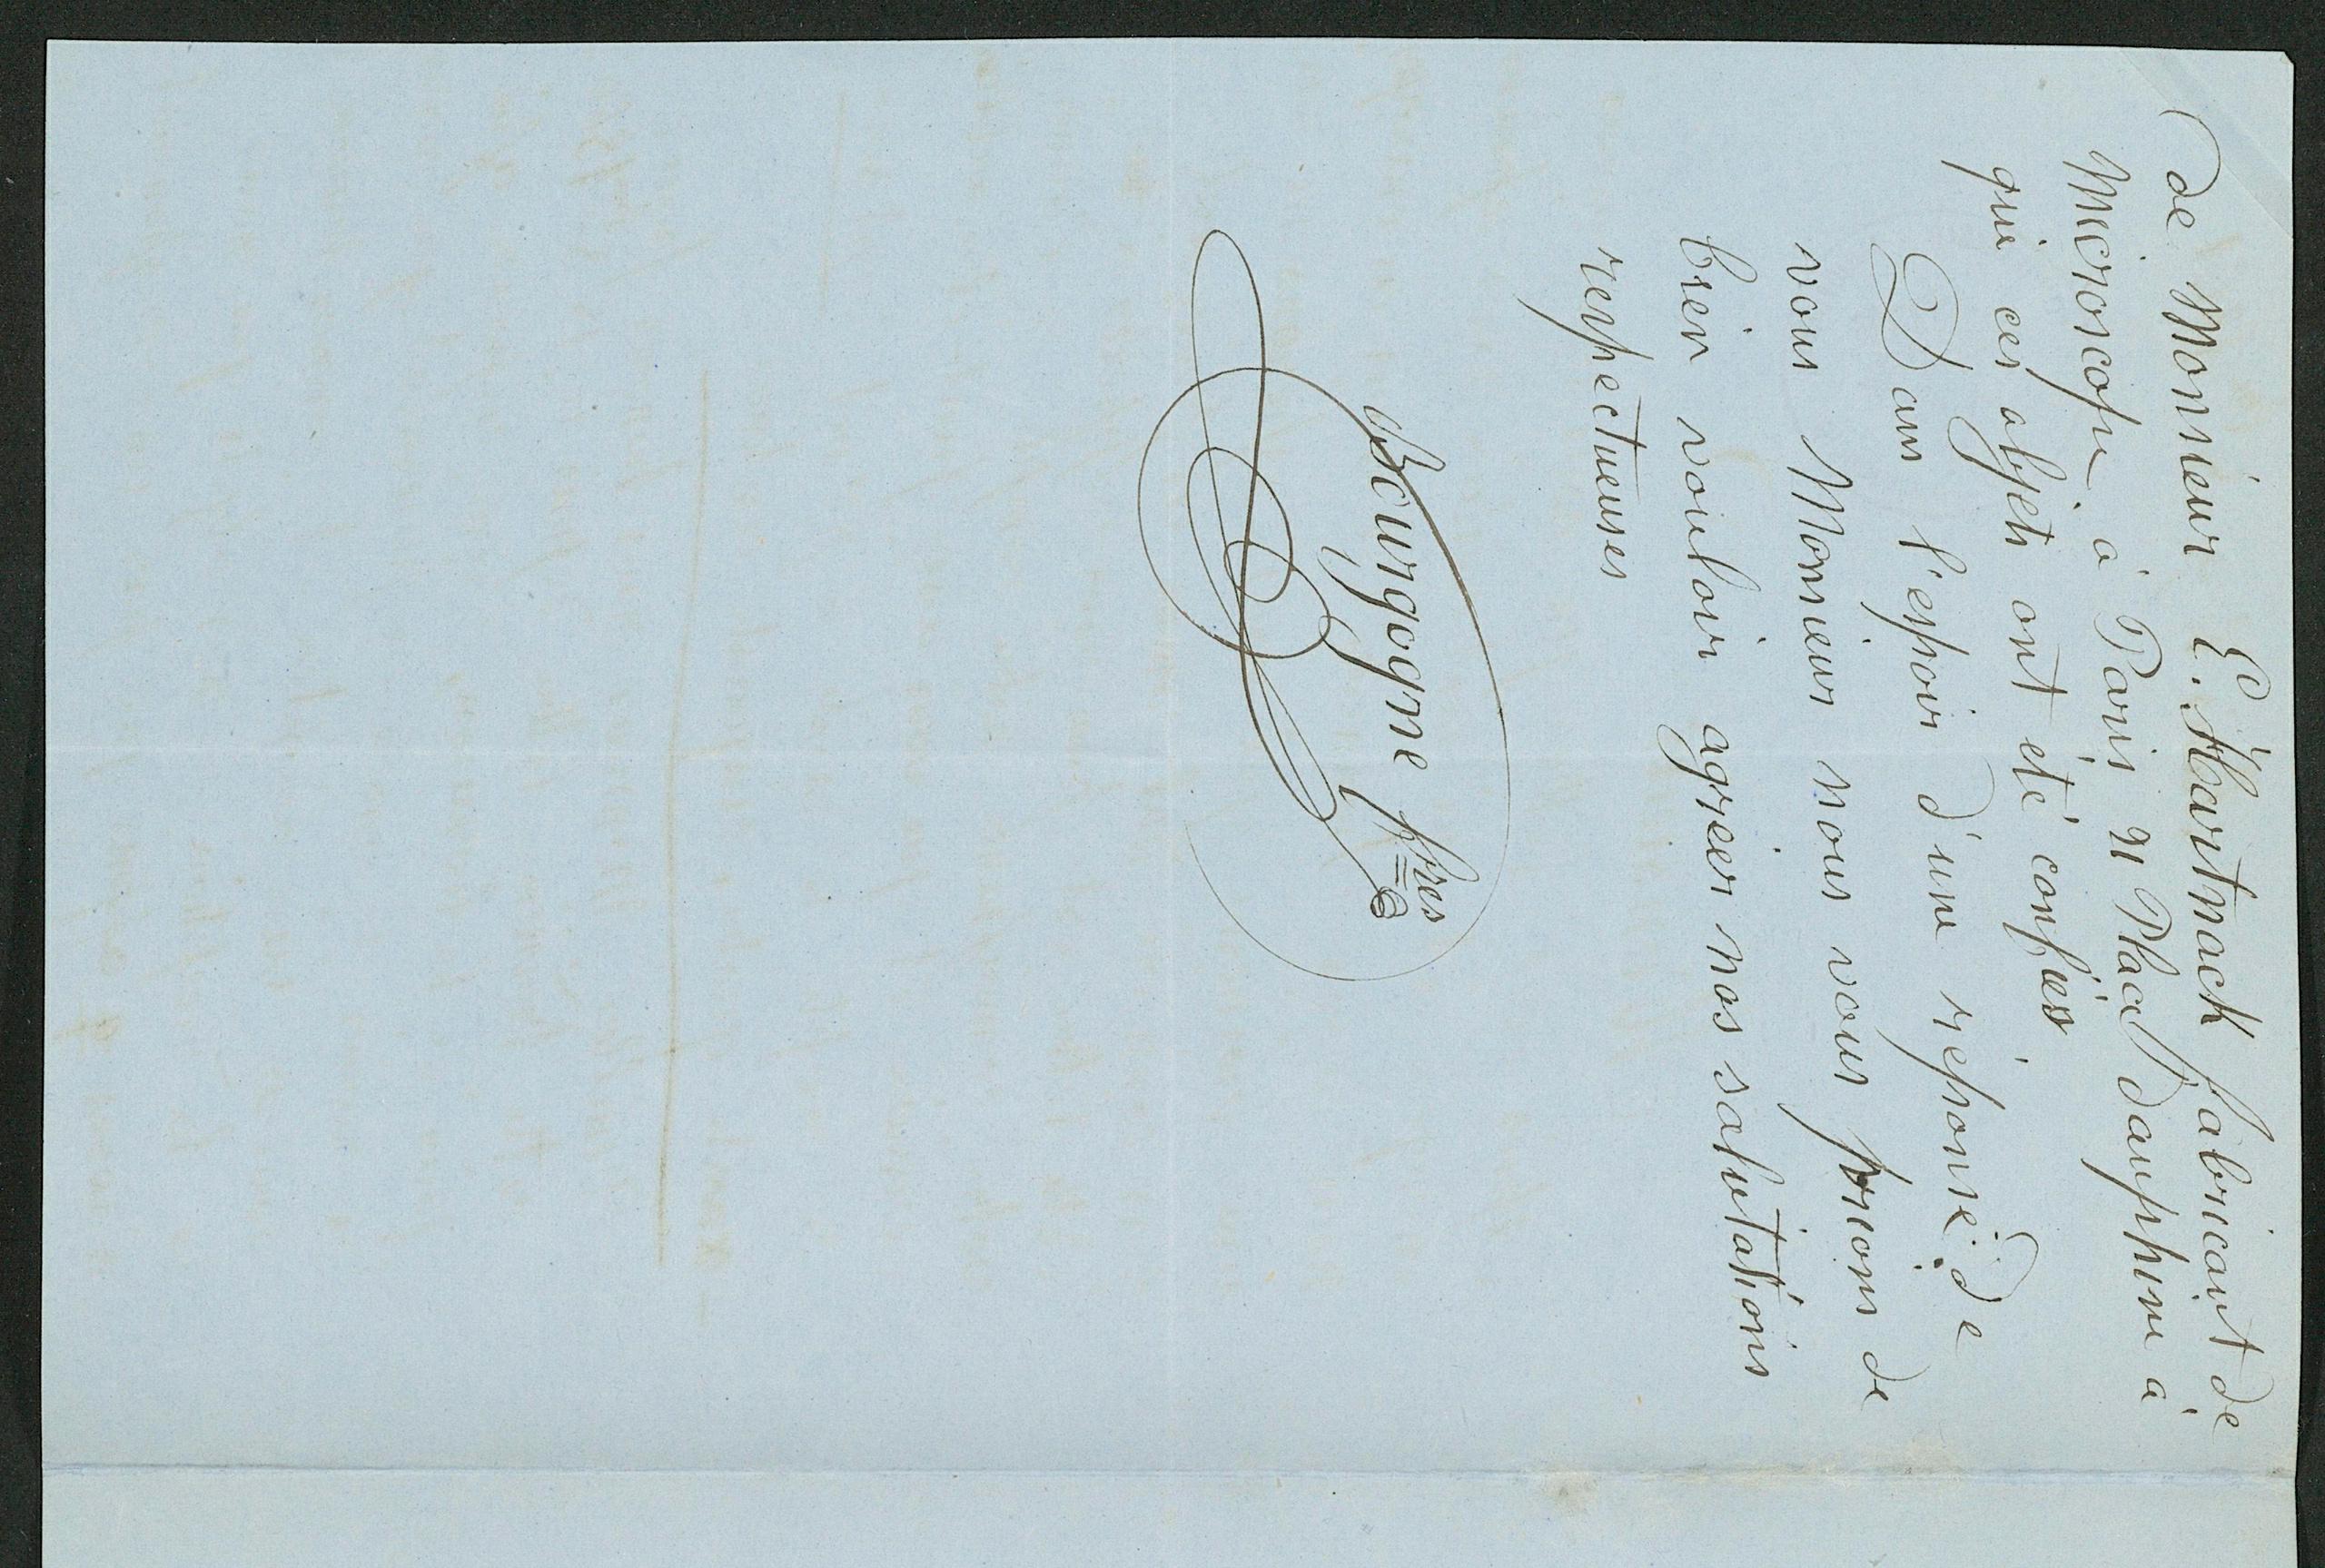 de Monsieur E. Hartnack fabricant de
Microscope à Paris 21 Place dauphine à
qui ces objets ont eté confiés
Dans l'espoir d'une réponse de
vous Monsieur nous vous prions de
bien vouloir agréer nos salutations
respectueuses
Bourgogne fres